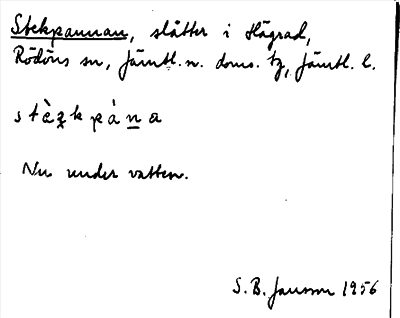 Stekpannan, slåtter i Hägrad,
Rödöns sn, Jämtl. n. doms. tg, Jämtl. l.
Nu under vatten.
S. B. Jansson 1956